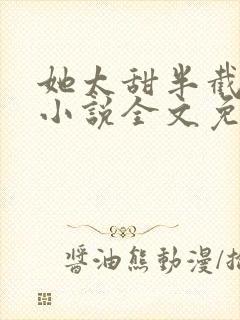 她太甜半截
小說全文免
醬油熊動漫/